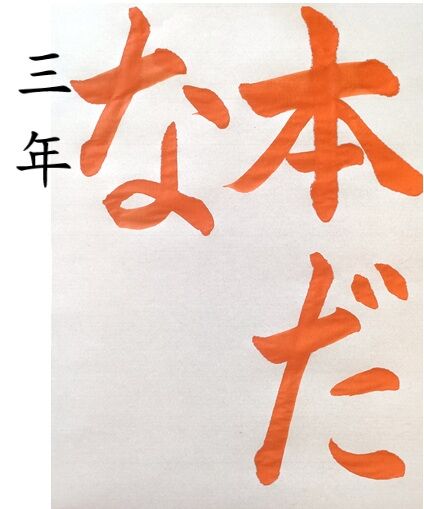 本だ
な
三年